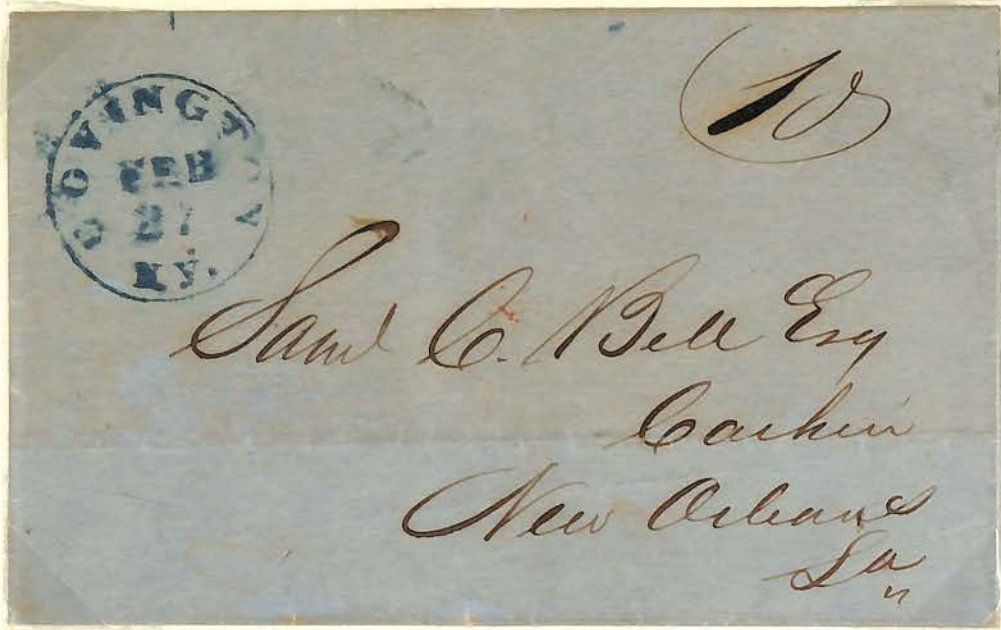 COVINGTON
FEB
27
KY.
10
Saml C. Bell Esq
Cashier
New Orleans
La